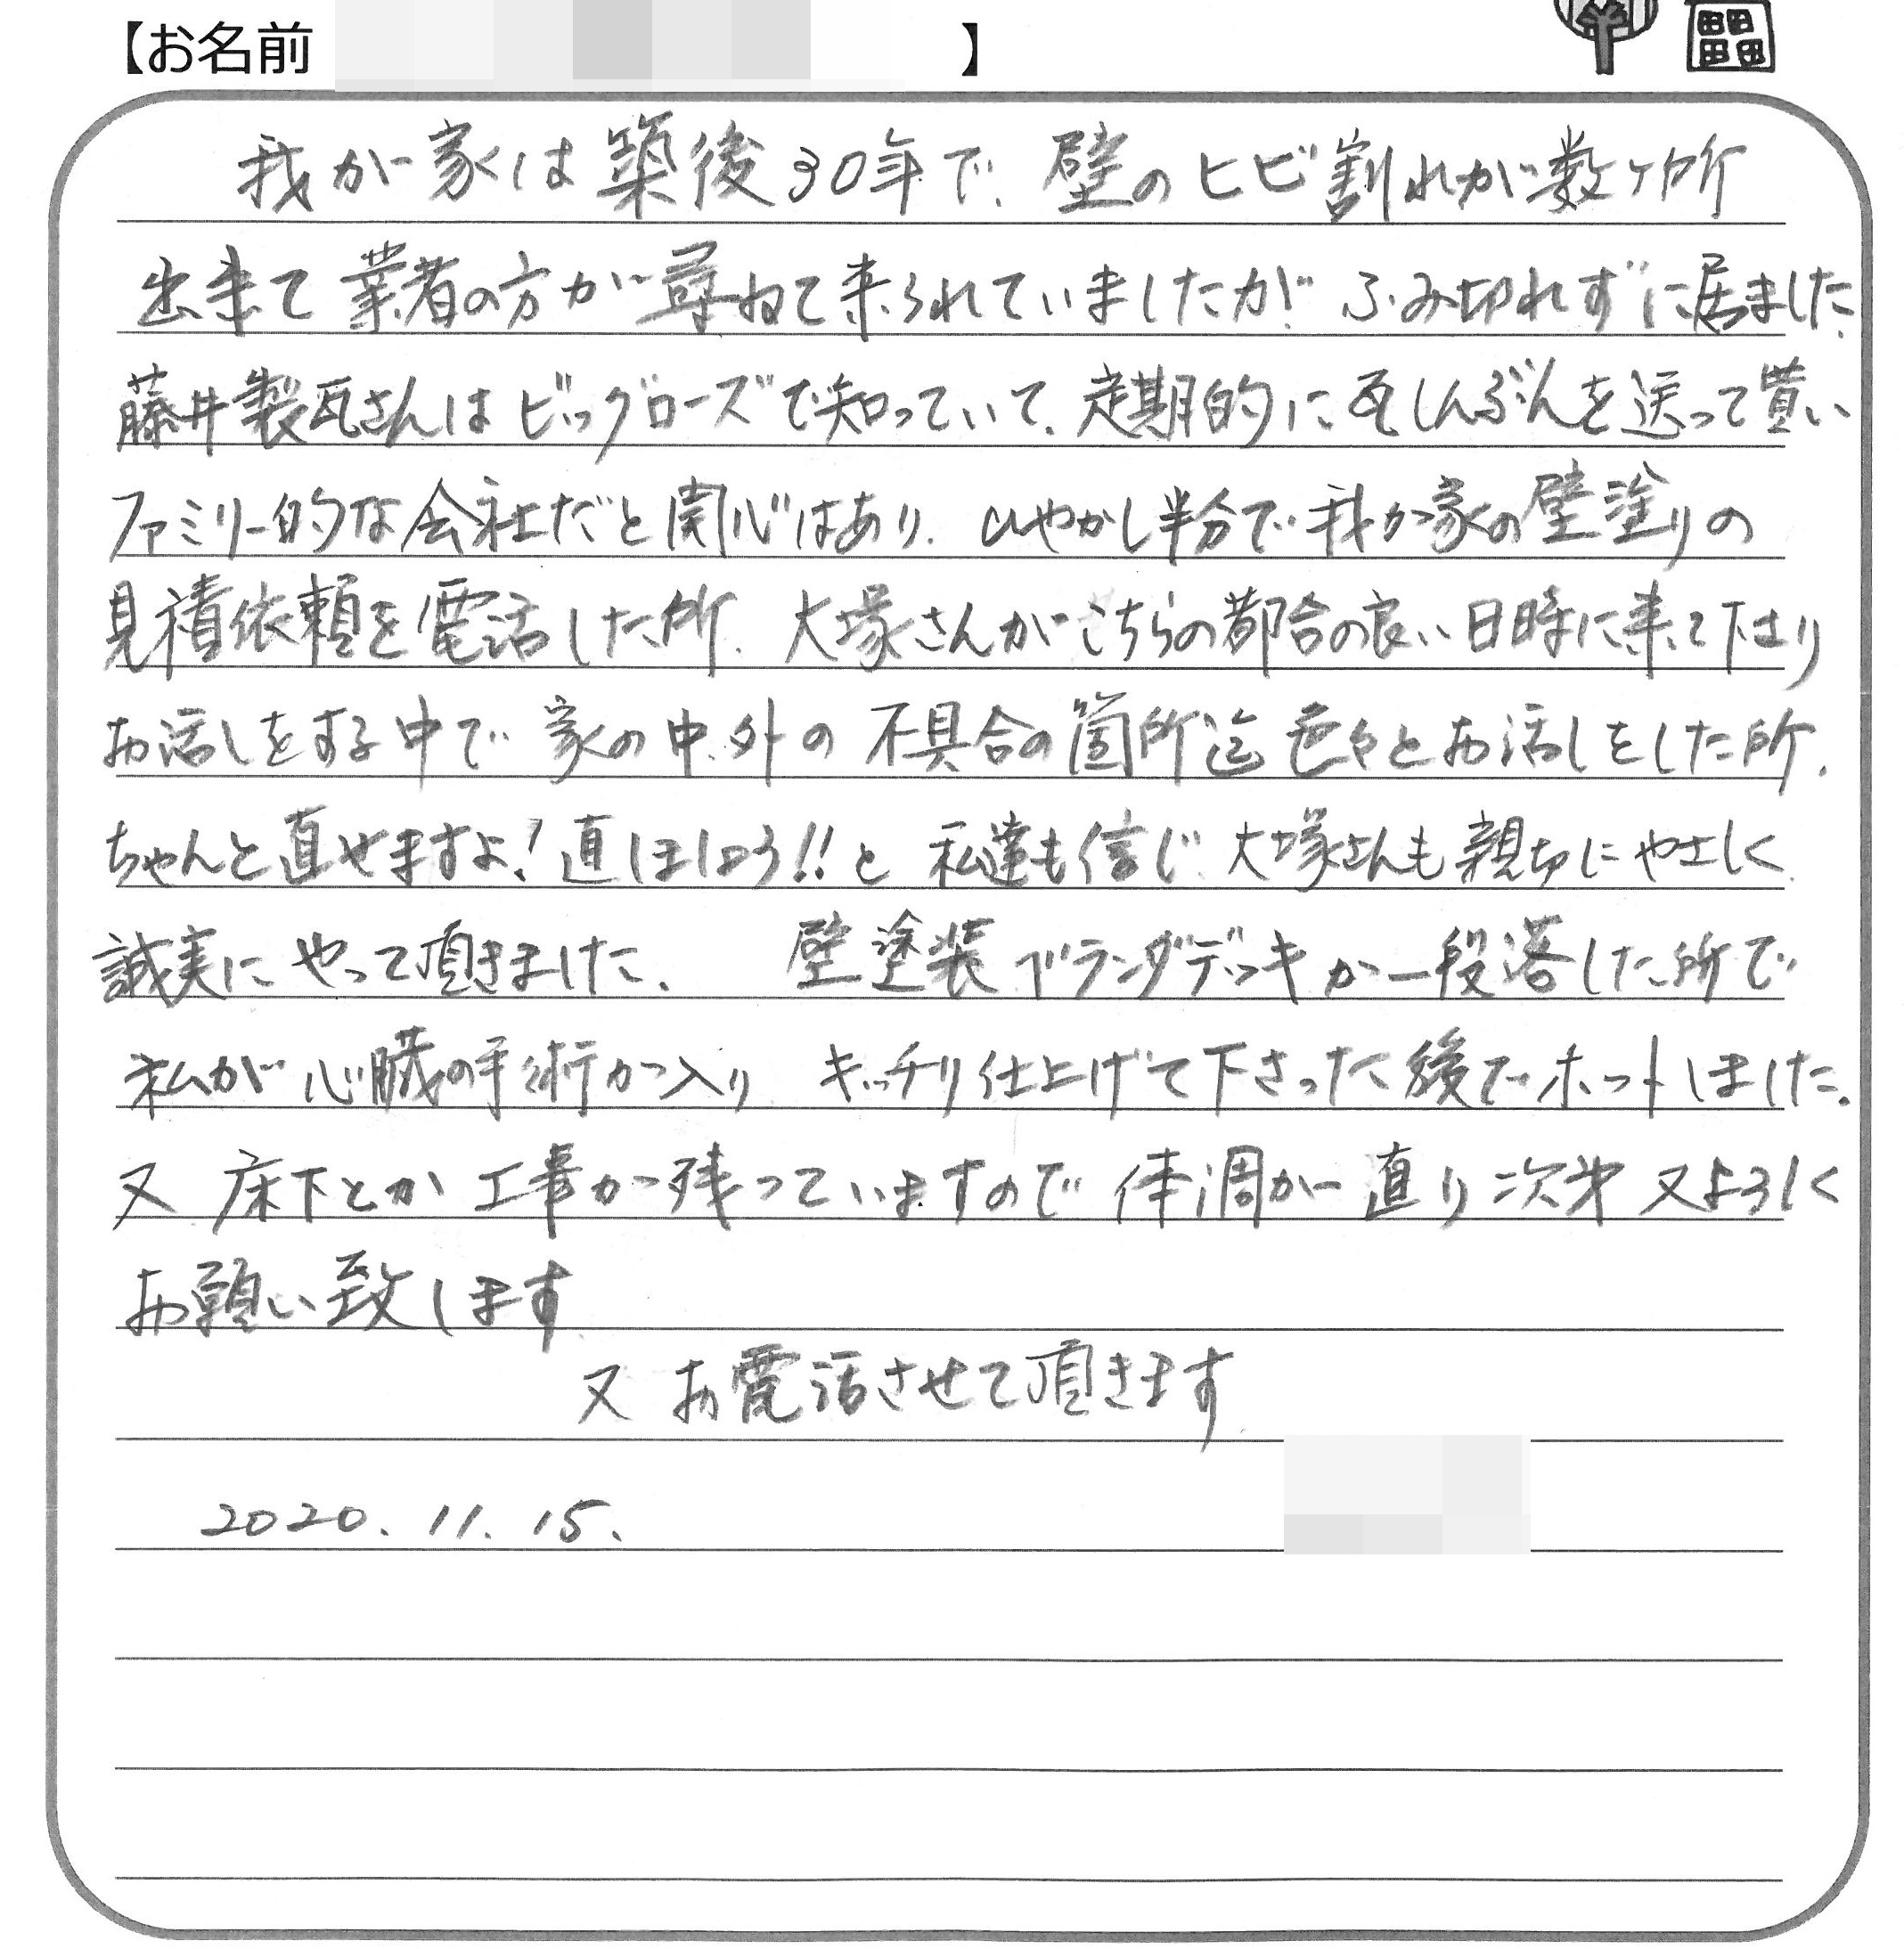 【お名前 】
我が家は築後30年で、壁のヒビ割れが数ヶ所
出来て業者の方が尋ねて来られていましたが ふみ切れずに居ました、
藤井製瓦さんはビッグローズで知っていて、定期的に瓦しんぶんを送って貰い
ファミリー的な会社だと関心はあり、ひやかし半分で我が家の壁塗りの
見積依頼を電話した所、大塚さんがこちらの都合の良い日時に来て下さり
お話しをする中で 家の中、外の 不具合の箇所迄 色々とお話しをした所、
ちゃんと直せますよ!直しましょう!!と 私達も信じ 大塚さんも親切にやさしく
誠実にやって頂きました、 壁塗装 ベランダデッキが一段落した所で
私が心臓の手術が入り キッチリ仕上げて下さった後でホットしました。
又 床下とか 工事が残っていますので 体調が直り次第 又よろしく
お願い致します
又お電話させて頂きます
2020.11.15.